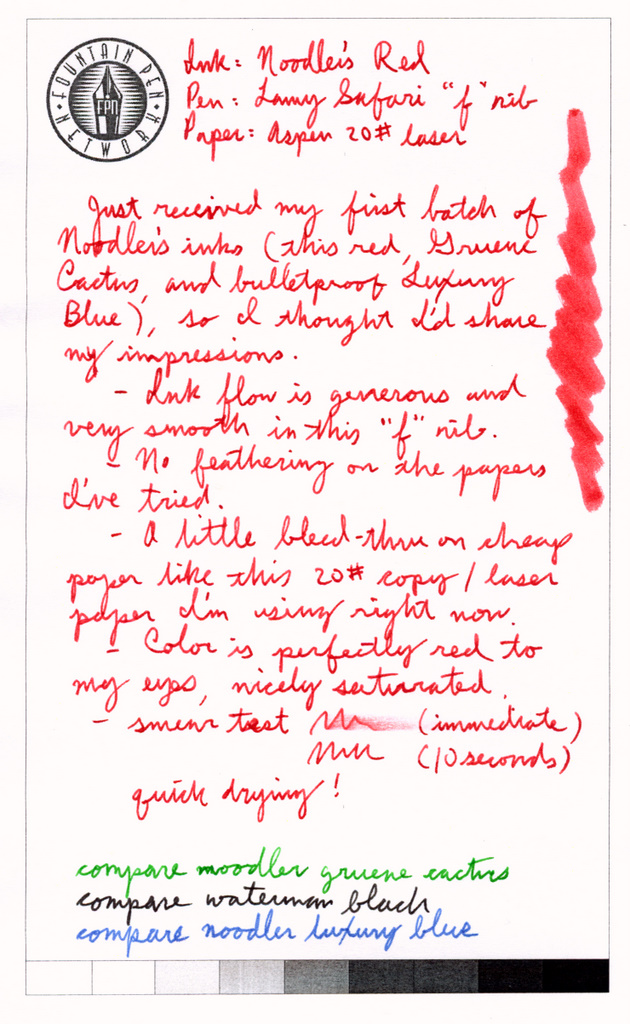 FOUNTAIN PEN NETWORK
FPN
Ink: Noodler's Red
Pen: Lamy Safari "f" nib
Paper: Aspen 20# laser
Just received my first batch of
Noodler's inks (this red, Gruene
Cactus, and bulletproof Luxury
Blue), so I thought I'd share
my impressions.
- Ink flow is generous and
very smooth in this "f" nib.
- No feathering on the papers
I've tried.
- A little bleed-thru on cheap
paper like this 20# copy/laser
paper I'm using right now.
- Color is perfectly red to
my eyes, nicely saturated.
- smear test (immediate)
(10 seconds)
quick drying!
compare noodler gruene cactus
compare waterman black
compare noodler luxury blue